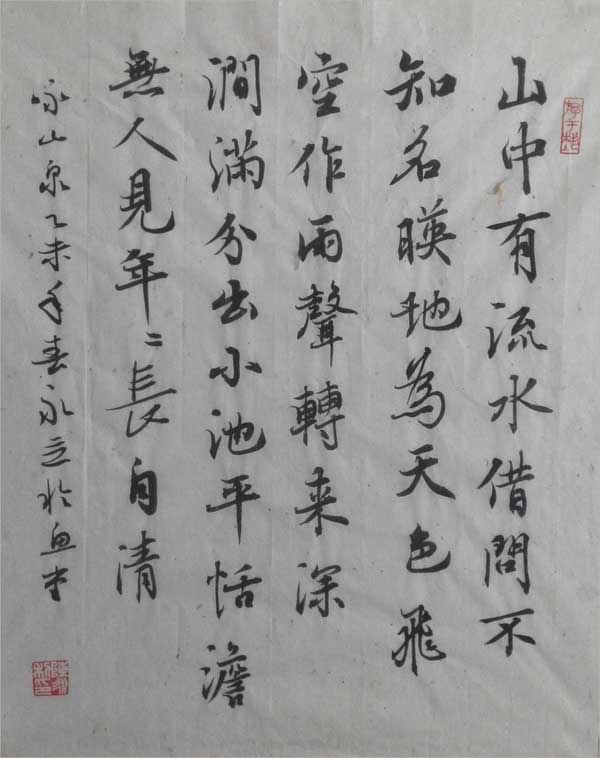 山中有流水借問不
知名暎地為天色飛
空作雨聲轉来深
澗滿分出小池平恬澹
無人見年〻長自清
咏山泉乙未年春永立於